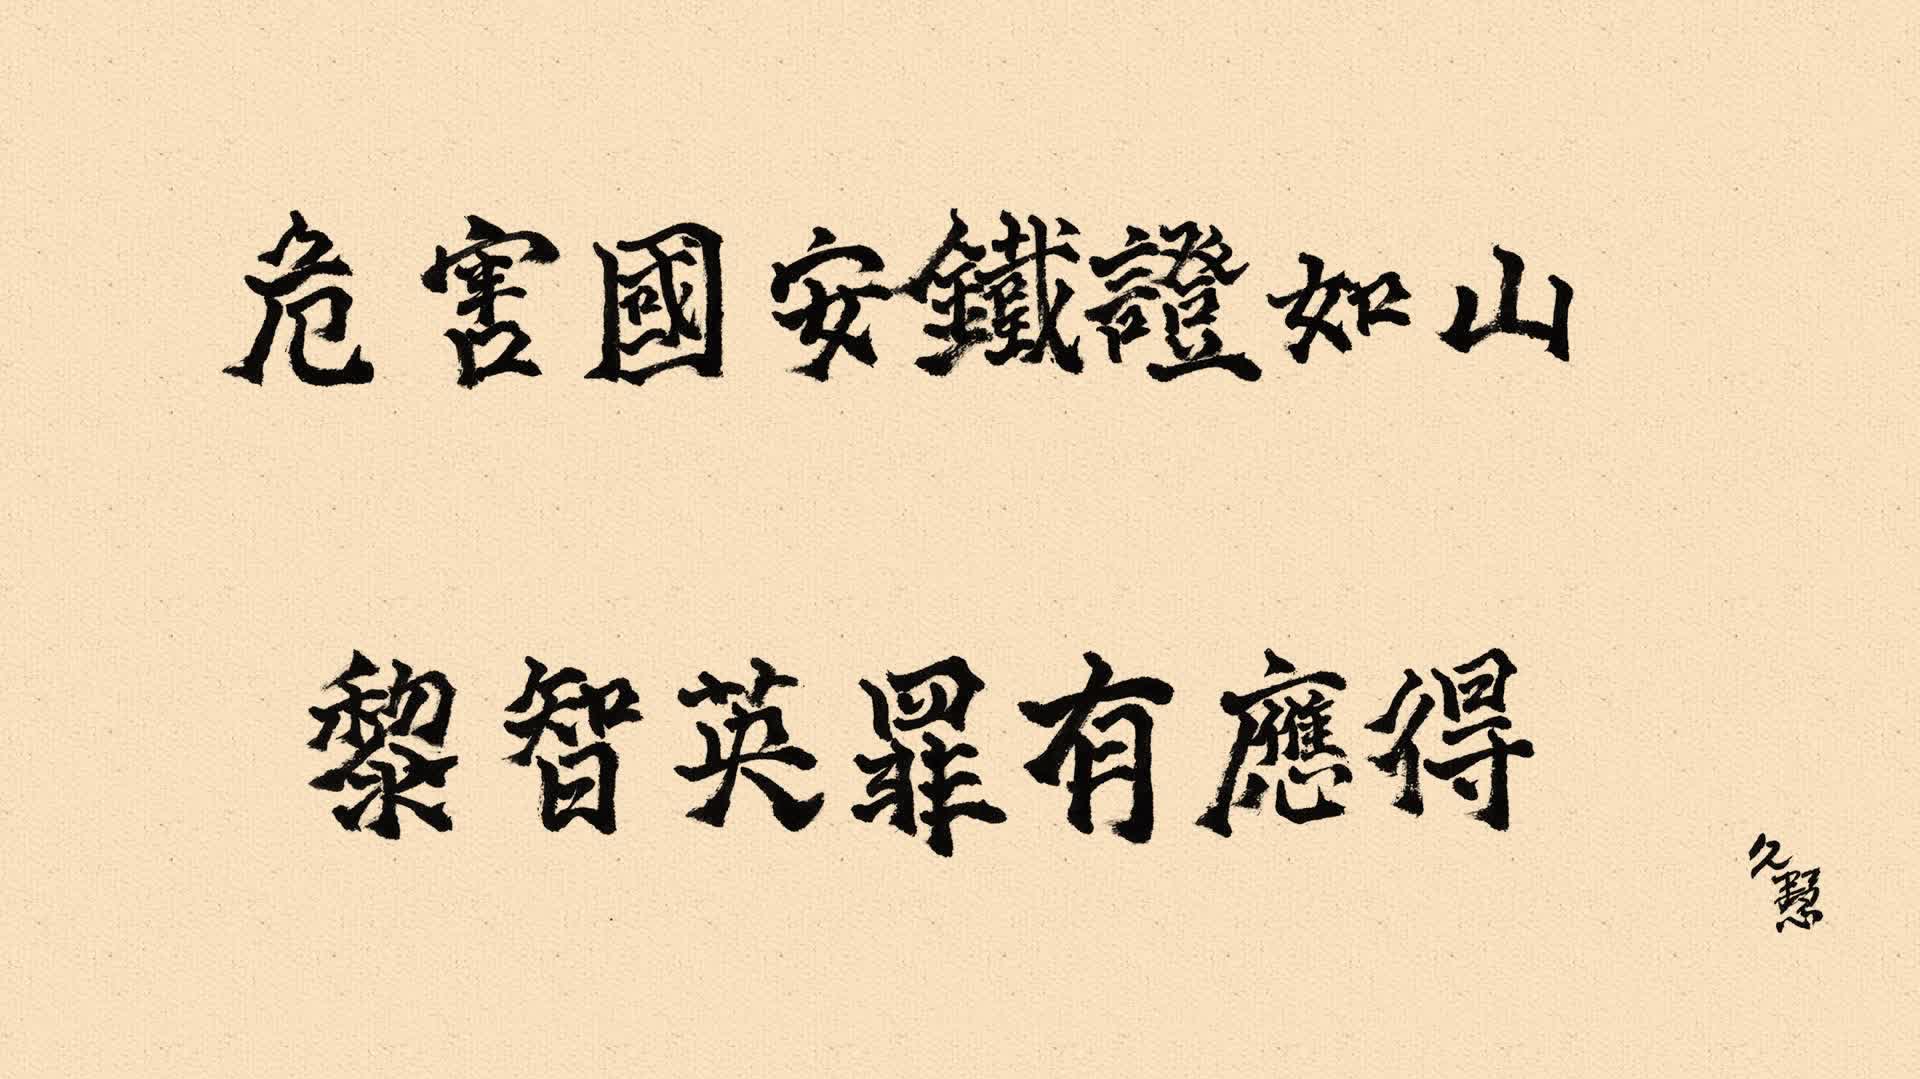 危害國安鐵證如山
黎智英罪有應得
久慧